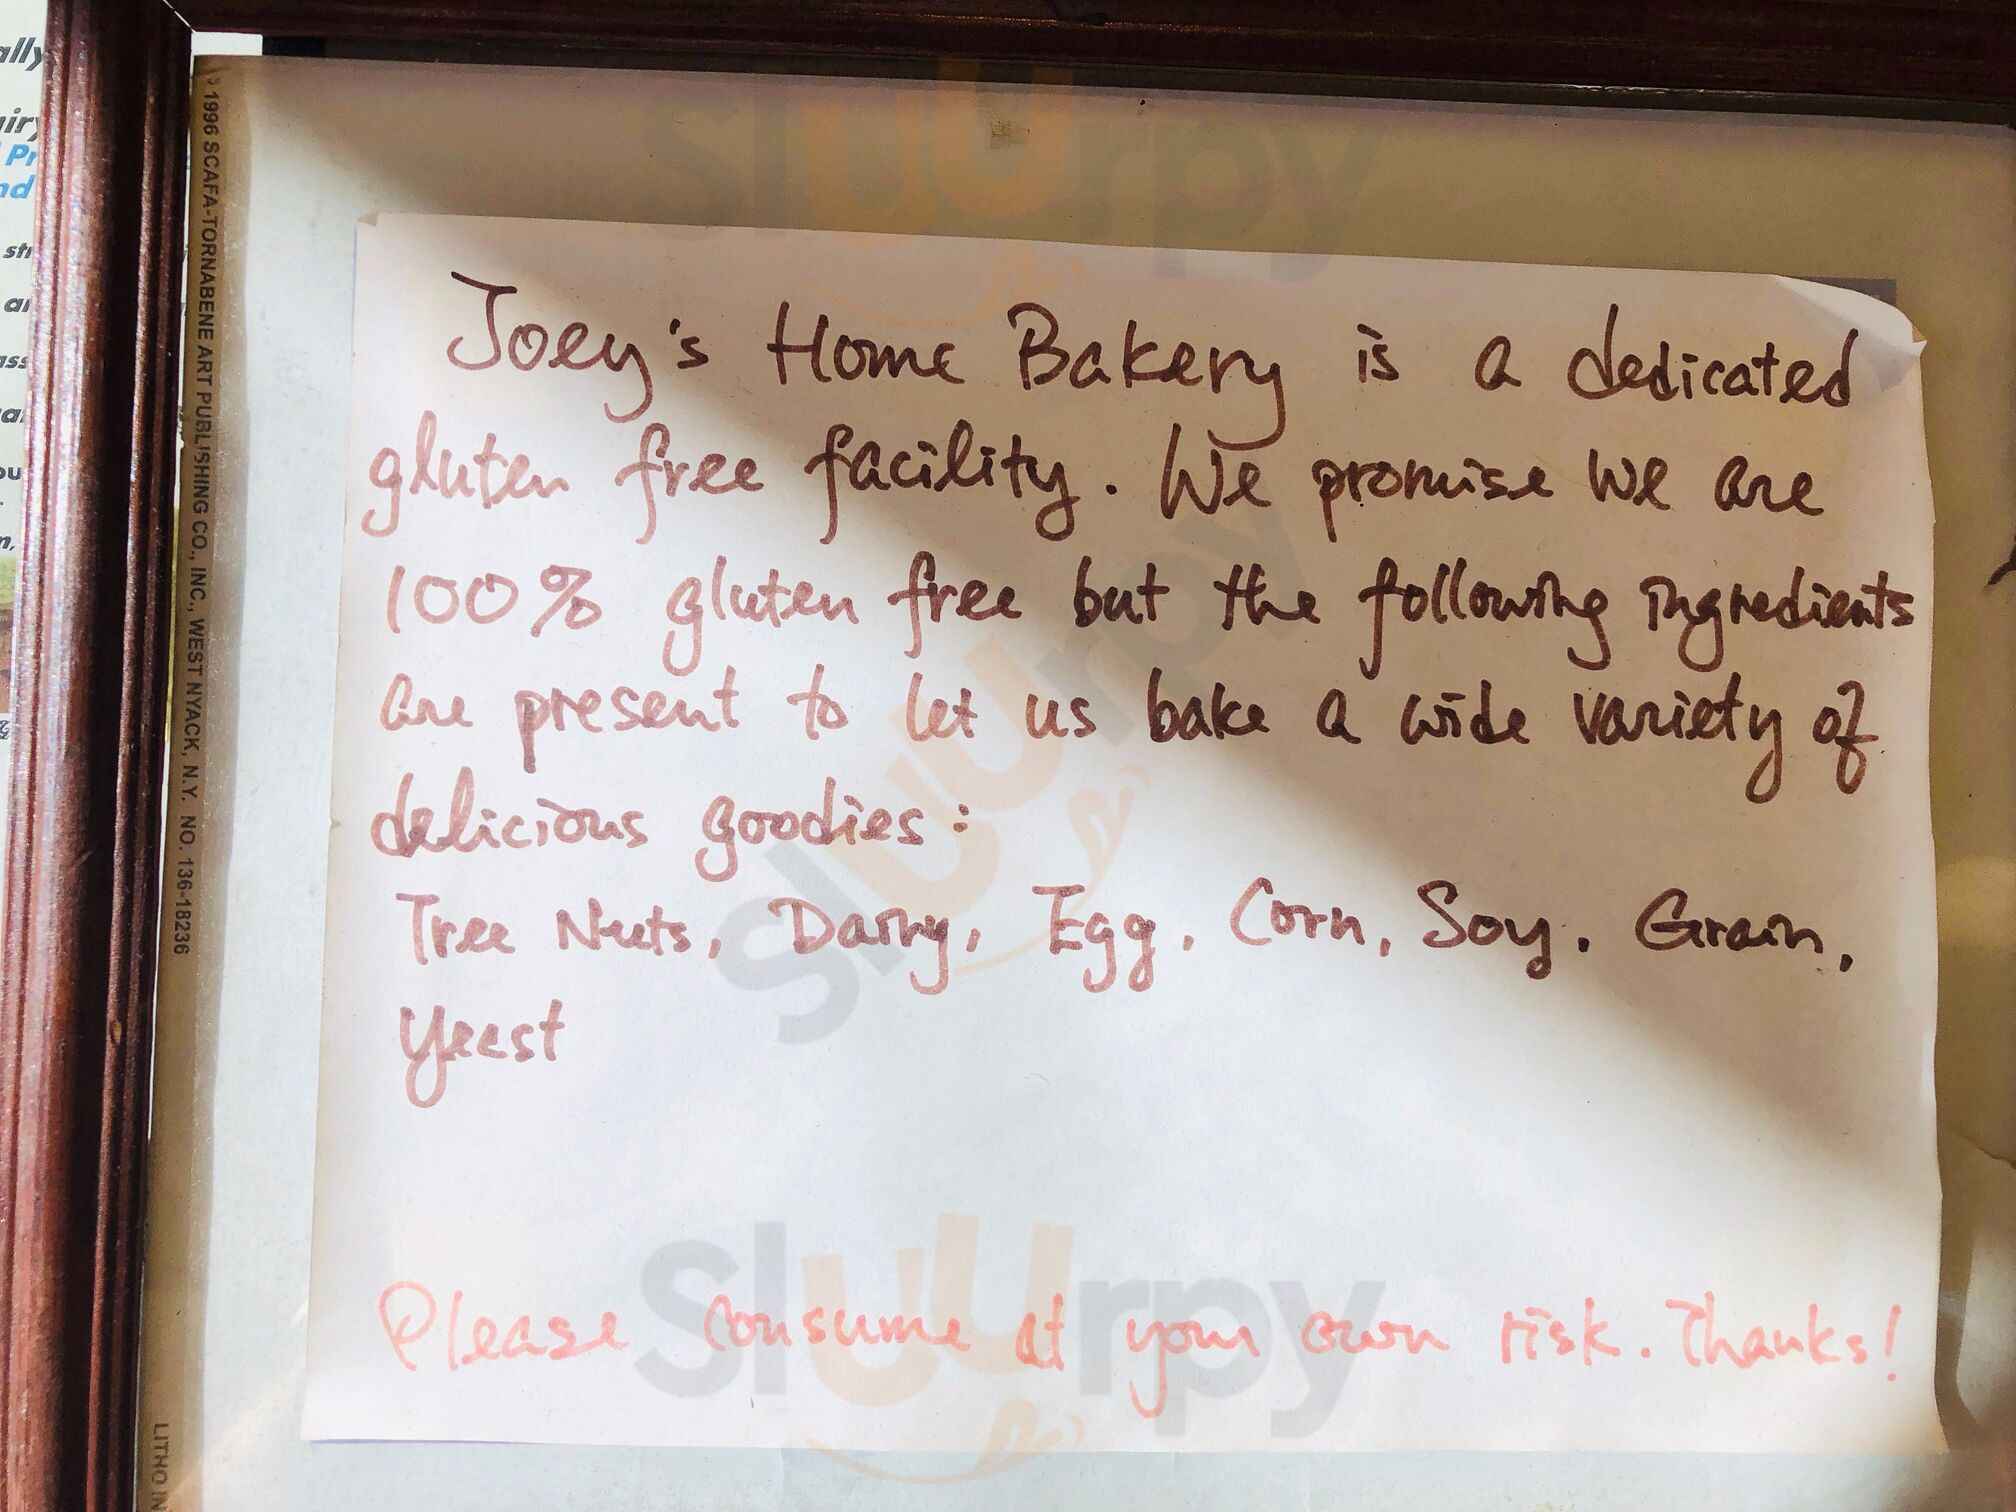 Joey's Home Bakery is a dedicated
gluten free facility. We promise we are
100% gluten free but the following ingredients
are present to let us bake a wide variety of
delicious goodies:
Tree Nuts, Dairy, Egg, Corn, Soy, Grain,
Yeast
Please consume at your own risk. Thanks!
1996 SCAFA-TORNABENE ART PUBLISHING CO., INC., WEST NYACK, N.Y. NO. 136-18236
LITHO IN
Sluurpy
Sluurpy
Sluurpy